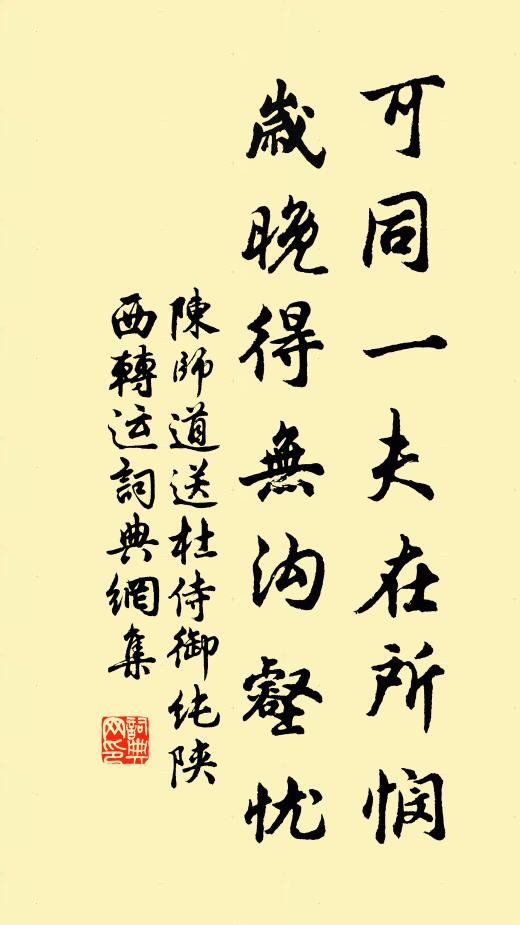 可同一夫在所悯
歲晚得無沟壑忧
陳師道送杜侍御纯陕
西轉运詞典網集
詞典网印